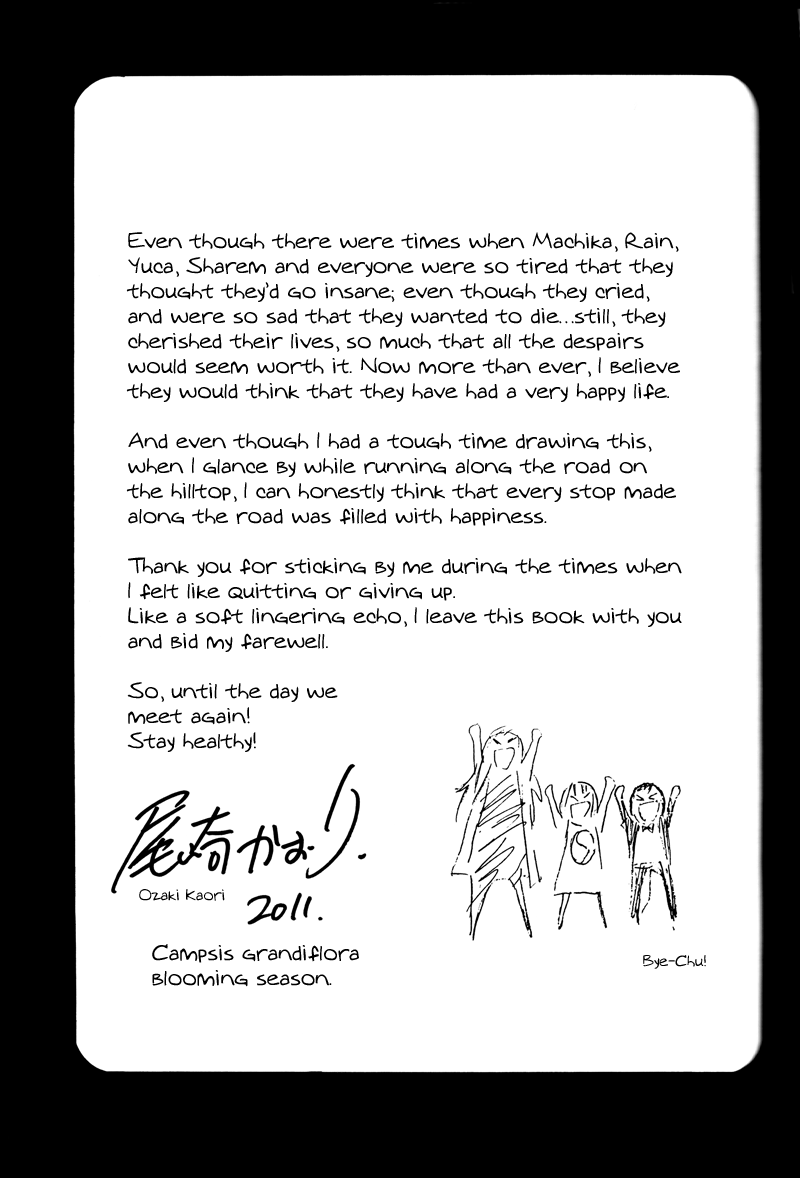 Even though there were times when Machika, Rain,
Yuca, Sharem and everyone were so tired that they
thought they'd go insane; even though they cried,
and were so sad that they wanted to die...still, they
cherished their lives, so much that all the despairs
would seem worth it. Now more than ever, I believe
they would think that they have had a very happy life.
And even though I had a tough time drawing this,
when I glance by while running along the road on
the hilltop, I can honestly think that every stop made
along the road was filled with happiness.
Thank you for sticking by me during the times when
I felt like quitting or giving up.
Like a soft lingering echo, I leave this book with you
and bid my farewell.
So, until the day we
meet again!
Stay healthy!
尾崎かおり.
Ozaki Kaori
2011.
Campsis grandiflora
blooming season.
S
Bye-Chu!